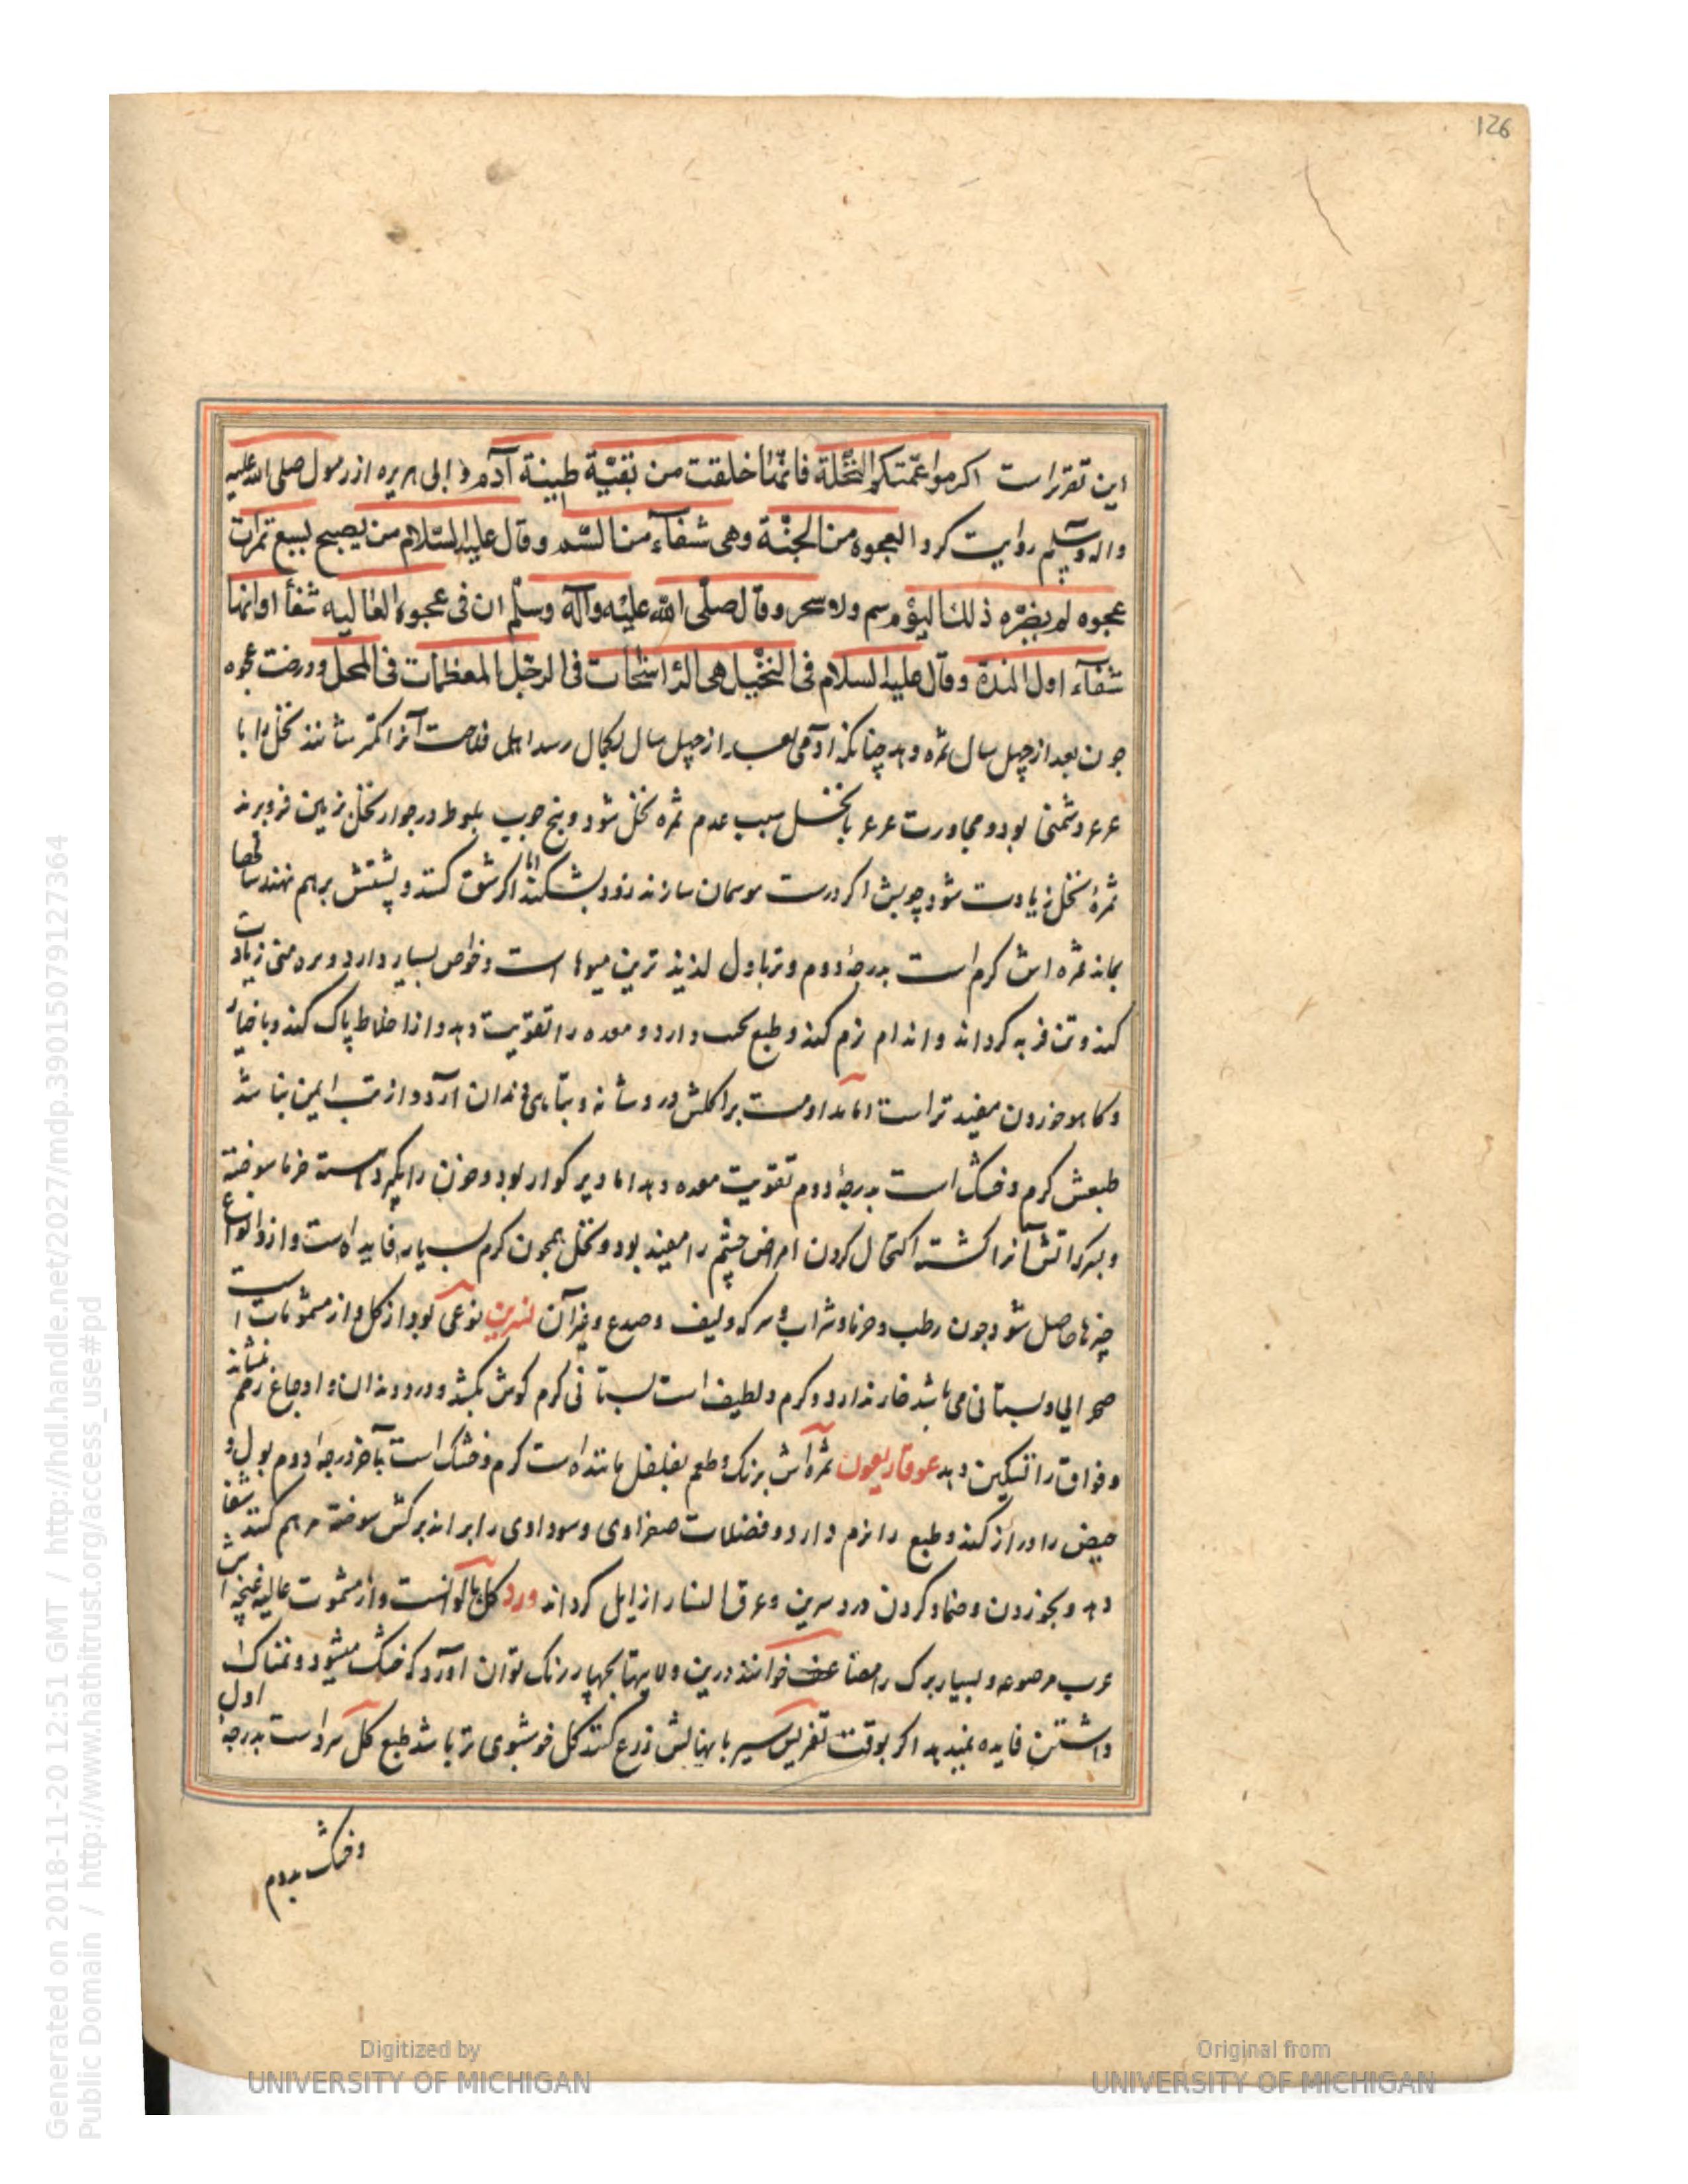 126
این تقریر است اکرموا عمّتکم النّخلة فانّها خلقت من بقیّة طینة آدم و ابی هریره از رسول صلی الله علیه
واله وسلم روایت کرد العجوه من الجنّة وهی شفآء من السّم وقال علیه السّلام من یصبح بسبع تمرات
عجوه لم یضرّه ذلک الیوم سم ولا سحر وقال صلّی الله علیه وآله وسلّم ان فی عجوه العالیه شفأ اوانها
شفآء اول المدة وقال علیه السلام فی النخیل هی الراسخات فی الوحل المعظمات فی المحل ودرخت عجوه
جون بعد از چهل سال ثمره دهد چنانکه آدمی بعد از چهل سال بکمال رسد اهل فلاحت آنرا کمتر نشانند نخل را با
عرعر دشمنی بود و مجاورت عرعر با نخل سبب عدم ثمره نخل شود و بنج جوب بلوط در جوار نخل بزمین فروبرند
ثمرهٔ نخل زیادت شود چوبش اکر درست سازند زود بشکند اما اکر شق کنند و پشتش برهم نهند سالها
بماند ثمره اش کرم است بدرجهٔ دوم وتر باول لذیذ ترین میوها است وخواص بسیار دارد و منی زیادت
کند وتن فربه کرداند و اندام نرم کند و طبع دارد و معده را تقویت دهد و از اخلاط پاک کند و با خیار
وکاهو خوردن مفید تر است اما مداومت بر اکلش درد و تباهی دندان آرد و از تب ایمن نباشد
طبعش کرم وخشک است بدرجهٔ دوم تقویت معده دهد اما دیر کوار بود و خون را دسته خرما سوخته
آنرا کشته اکتحال کردن امراض چشم را مفید بود و نخل همجون کرم بسیار فایده است و ازو انواع
چیزها حاصل شود جون رطب و خرما و شراب و سرکه و لیف و غیر آن نسرین نوعی بود از کل و از مشمومات است
صحرایی و بستانی می باشد خار ندارد و کرم و لطیف است بستانی کرم کوش بکشد و درد دندان و اوجاع رحم بنشاند
و فواق را تسکین دهد عوفاریعون ثمره اش برنک و طعم بفلفل مانند است کرم و خشک است بآخر درجه دوم بول و
حیض را کند و طبع را نرم دارد و فضلات صفراوی و سوداوی را براند برکش سوخته مرهم کنند شفا
دهد و بخوردن و ضماد کردن درد سرین و عرق النسا را زایل کرداند ورد کل و از مشمومات عالیه غنچه اش
عرب و بسیار برک را مضاعف خوانند درین ولا بچهار رنک توان آورد که خشک میشود و نمناک
داشتن فایده نمیدهد اکر بوقت تغریس سیر با نهالش زرع کنند کل خوشبوی تر باشد طبع کل سرد است بدرجهٔ اول
وخشک بدوم
Generated on 2018-11-20 12:51 GMT / http://hdl.handle.net/2027/mdp.39015079127364
Public Domain / http://www.hathitrust.org/access_use#pd
Digitized by
UNIVERSITY OF MICHIGAN
Original from
UNIVERSITY OF MICHIGAN